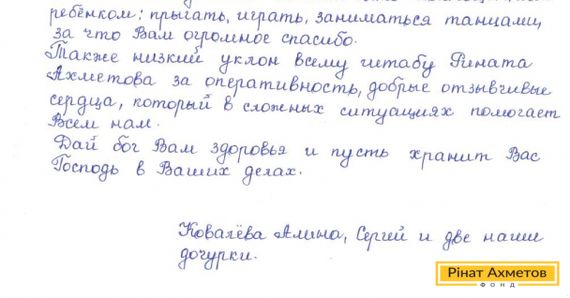 ребёнком: прыгать, играть, заниматься танцами,
за что Вам огромное спасибо.
Также низкий уклон всему штабу Рината
Ахметова за оперативность, добрые отзывчивые
сердца, который в сложных ситуациях помогает
Всем нам.
Дай бог Вам здоровья и пусть хранит Вас
Господь в Ваших делах.
Ковалёва Алина, Сергей и две наши
дочурки.
Рінат Ахметов
ФОНД